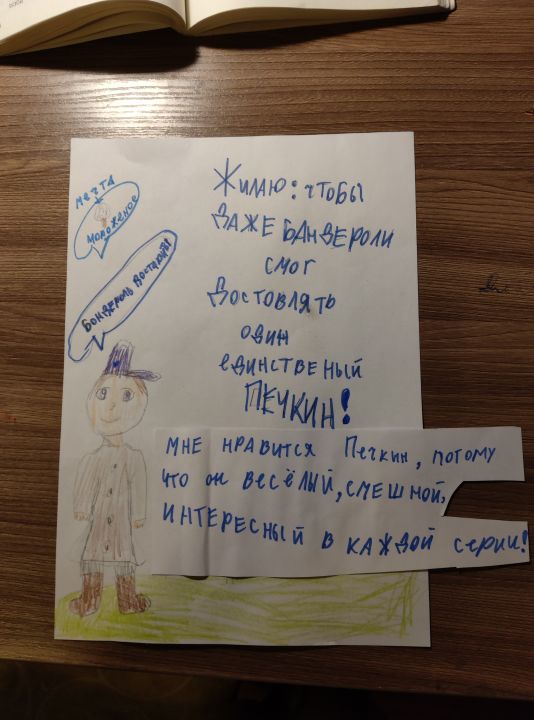 мечта
мороженое
Бондероль доставить!
Жилаю: чтобы
даже бандероли
смог
достовлять
один
единственый
ПЕЧКИН!
мне нравится Печкин, потому
что он весёлый, смешной,
интересный в каждой серии!